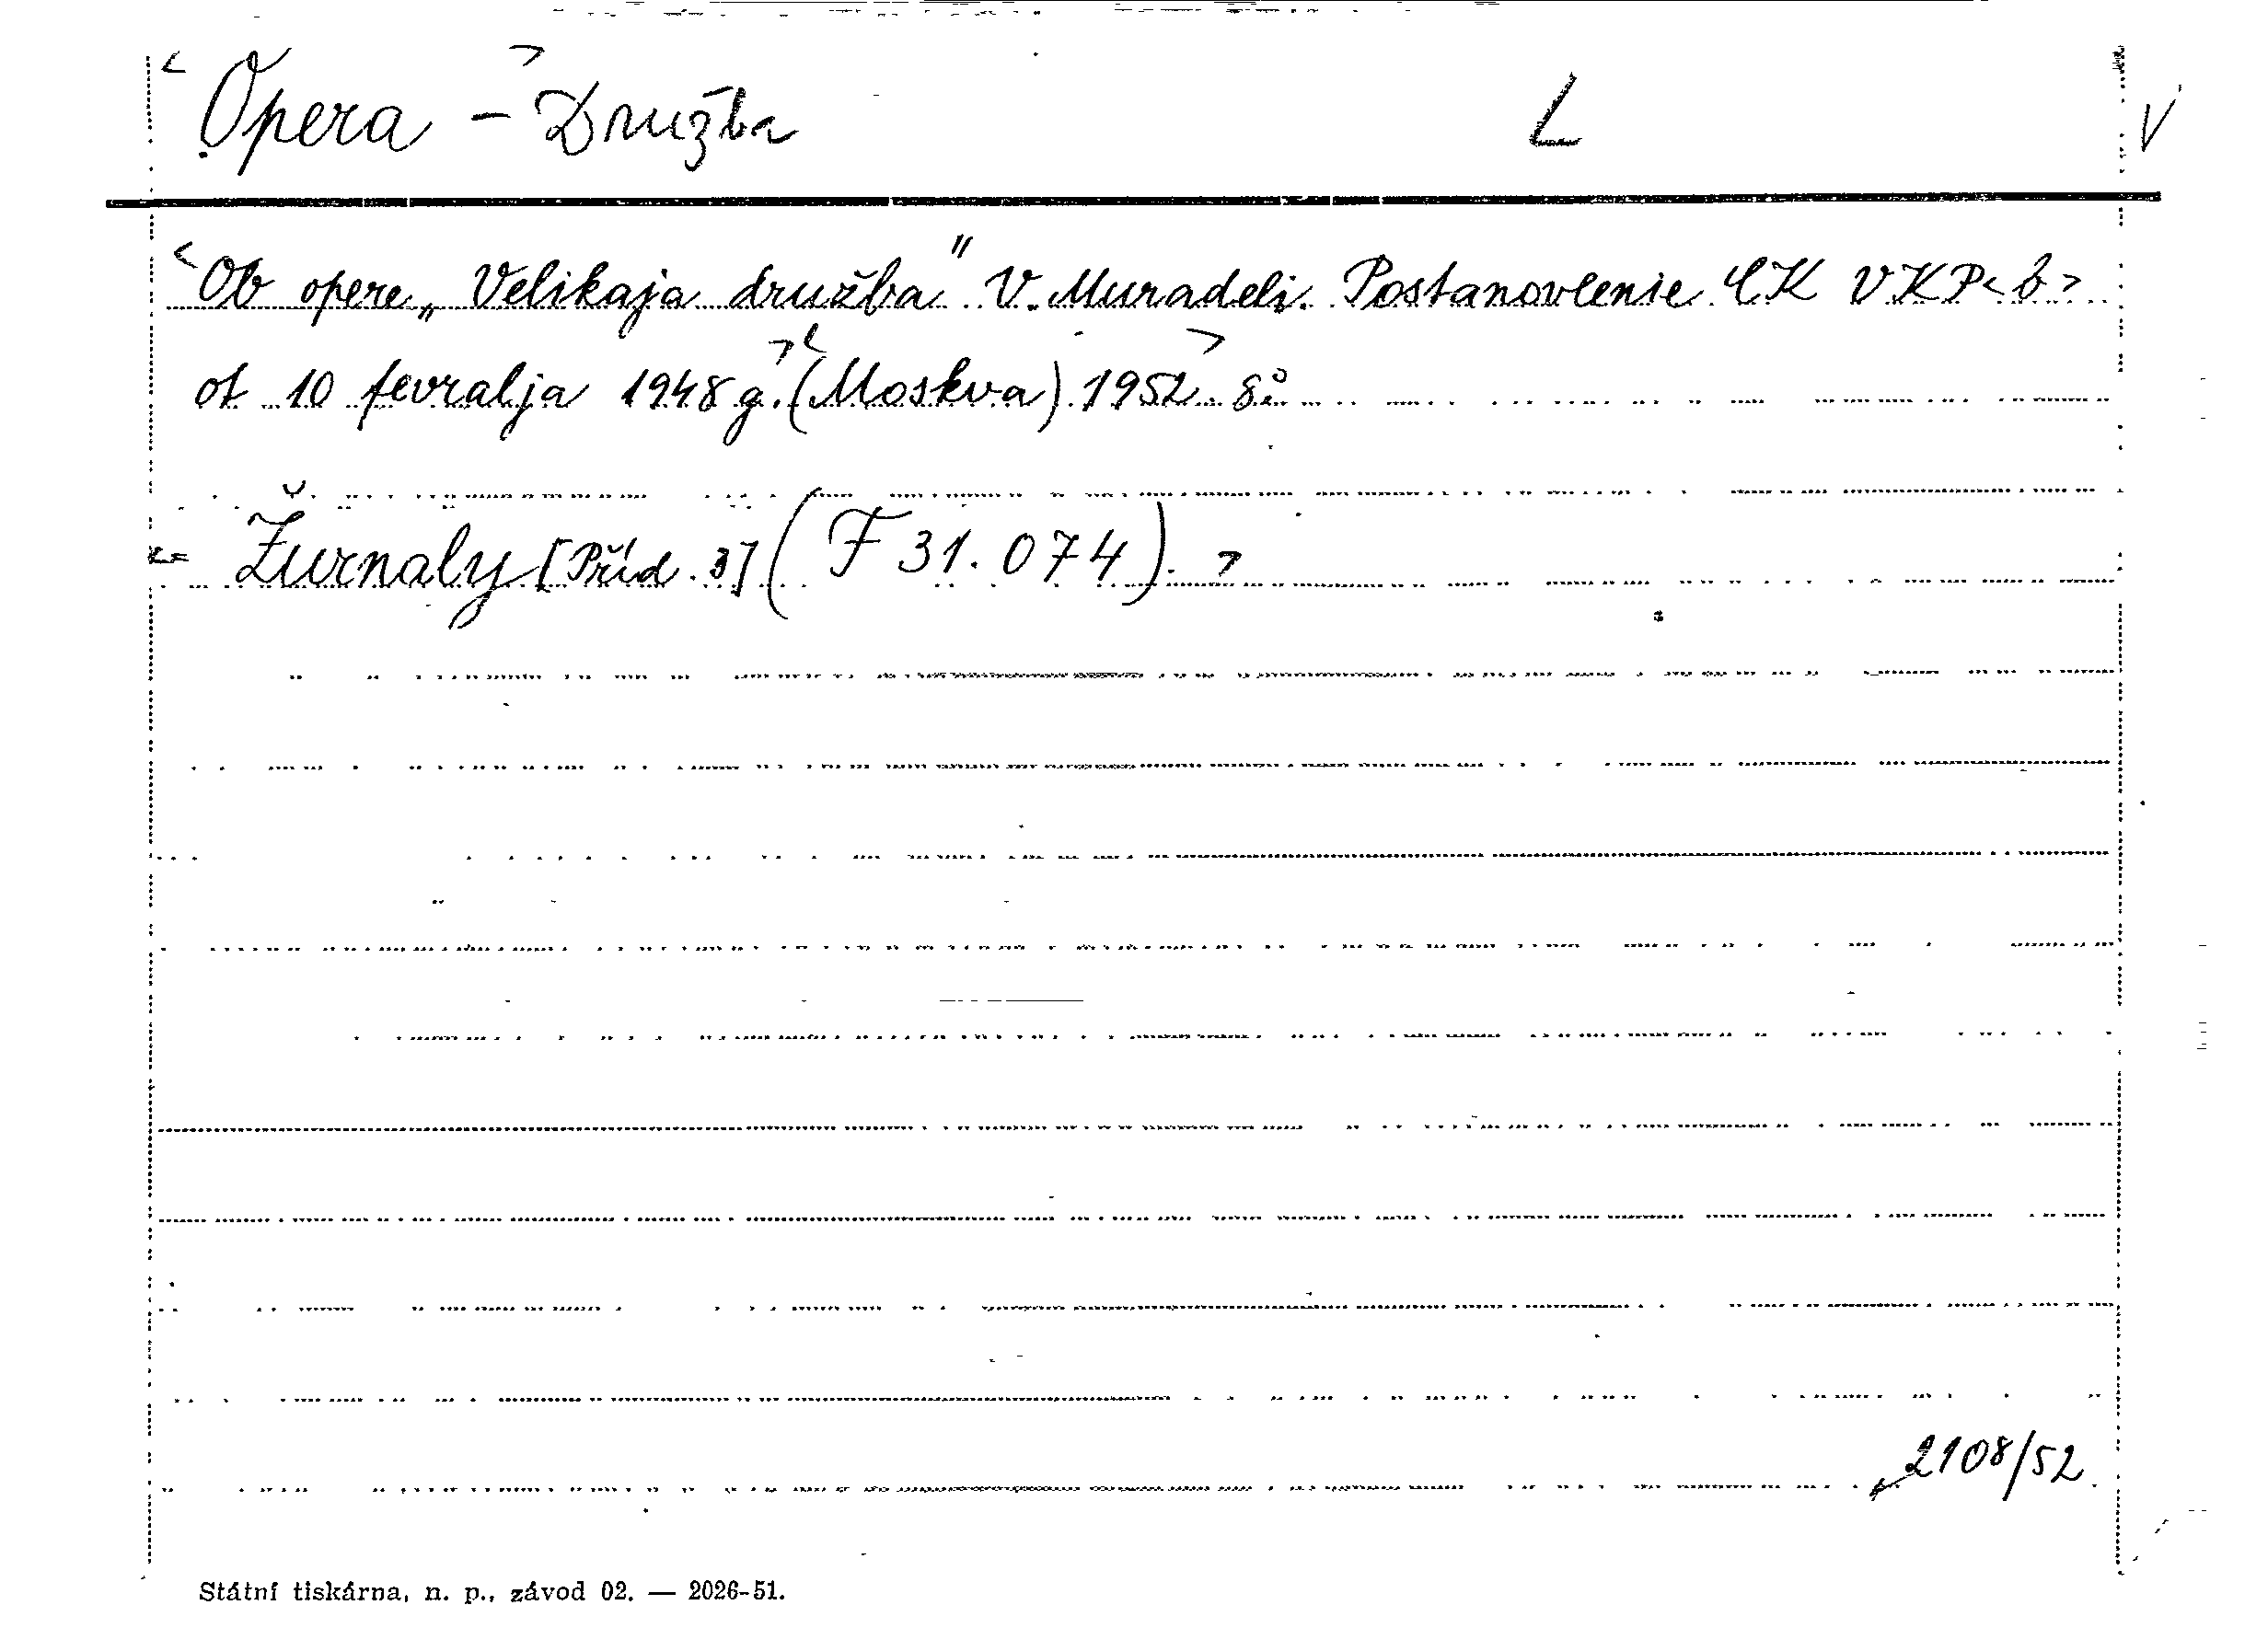 <Opera> - Družba L V
<Ob opere „Velikaja družba" V. Muradeli. Postanovlenie CK VKP<b>
ot 10 fevralja 1948 g.> <(Moskva) 1952> 8°
<= Žurnaly [Příd. 3] (F 31.074). >
2108/52
Státní tiskárna, n. p., závod 02. — 2026-51.